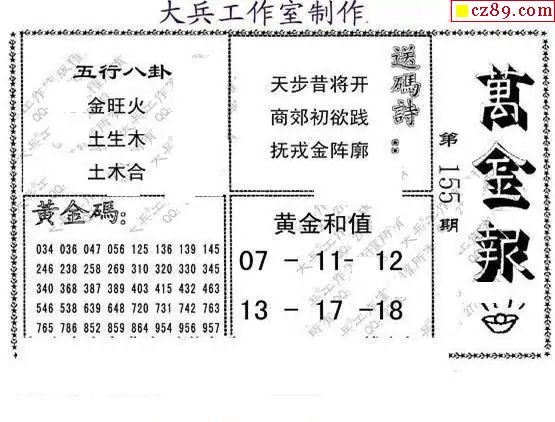 大兵工作室制作
cz89.com
五行八卦
金旺火
土生木
土木合
送碼詩：
天步昔将开
商郊初欲践
抚戎金阵廓
萬金報
第155期
黃金碼：
034 036 047 056 125 136 139 145
246 238 258 269 310 320 330 345
340 368 387 389 413 415 436 457
546 538 639 648 720 731 742 763
765 786 852 859 864 954 956 957
黄金和值
07 - 11- 12
13 - 17 -18